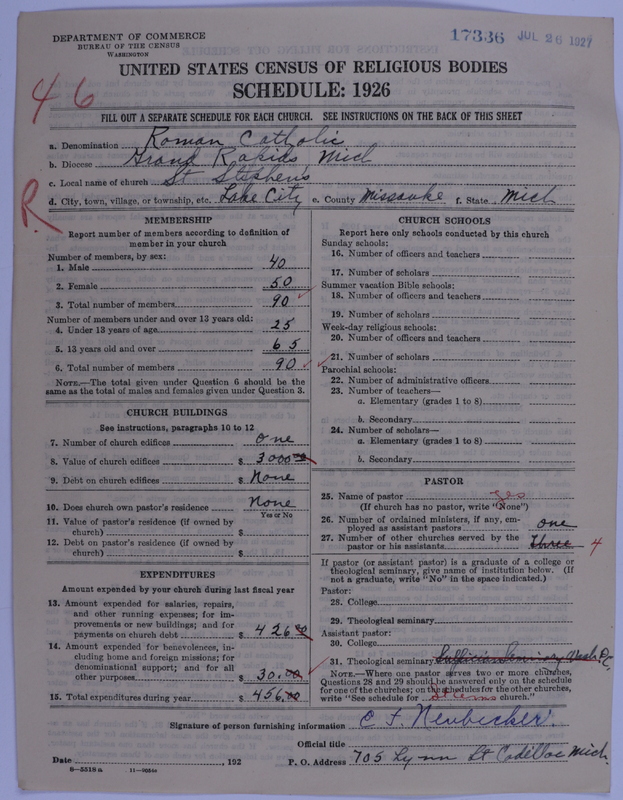 DEPARTMENT OF COMMERCE
BUREAU OF THE CENSUS
WASHINGTON
17336 JUL 26 1927
UNITED STATES CENSUS OF RELIGIOUS BODIES
SCHEDULE: 1926
46
FILL OUT A SEPARATE SCHEDULE FOR EACH CHURCH. SEE INSTRUCTIONS ON THE BACK OF THIS SHEET
a. Denomination Roman Catholic
b. Diocese Grand Rapids Mich
c. Local name of church St Stephens
d. City, town, village, or township, etc. Lake City e. County Missauke f. State Mich
R.
MEMBERSHIP
Report number of members according to definition of
member in your church
Number of members, by sex:
1. Male 40
2. Female 50
3. Total number of members 90
Number of members under and over 13 years old:
4. Under 13 years of age 25
5. 13 years old and over 65
6. Total number of members 90
NOTE.—The total given under Question 6 should be the
same as the total of males and females given under Question 3.
CHURCH BUILDINGS
See instructions, paragraphs 10 to 12
7. Number of church edifices one
8. Value of church edifices $ 3000.00
9. Debt on church edifices $ None
10. Does church own pastor's residence None
Yes or No
11. Value of pastor's residence (if owned by
church) $
12. Debt on pastor's residence (if owned by
church) $
EXPENDITURES
Amount expended by your church during last fiscal year
13. Amount expended for salaries, repairs,
and other running expenses; for im-
provements or new buildings; and for
payments on church debt $ 426.00
14. Amount expended for benevolences, in-
cluding home and foreign missions; for
denominational support; and for all
other purposes $ 30.00
15. Total expenditures during year $ 456.00
CHURCH SCHOOLS
Report here only schools conducted by this church
Sunday schools:
16. Number of officers and teachers
17. Number of scholars
Summer vacation Bible schools:
18. Number of officers and teachers
19. Number of scholars
Week-day religious schools:
20. Number of officers and teachers
21. Number of scholars
Parochial schools:
22. Number of administrative officers
23. Number of teachers—
a. Elementary (grades 1 to 8)
b. Secondary
24. Number of scholars—
a. Elementary (grades 1 to 8)
b. Secondary
PASTOR
25. Name of pastor yes
(If church has no pastor, write "None")
26. Number of ordained ministers, if any, em-
ployed as assistant pastors one
27. Number of other churches served by the
pastor or his assistants three 4
If pastor (or assistant pastor) is a graduate of a college or
theological seminary, give name of institution below. (If
not a graduate, write "No" in the space indicated.)
Pastor:
28. College
29. Theological seminary
Assistant pastor:
30. College
31. Theological seminary Sulpician Seminary Wash. D.C.
NOTE.—Where one pastor serves two or more churches,
Questions 28 and 29 should be answered only on the schedule
for one of the churches; on the schedules for the other churches,
write "See schedule for St Anns church."
Signature of person furnishing information O F Neubecker
Official title
Date , 192 P. O. Address 705 Lynn St Cadillac Mich.
8—5518 a 11—9054a